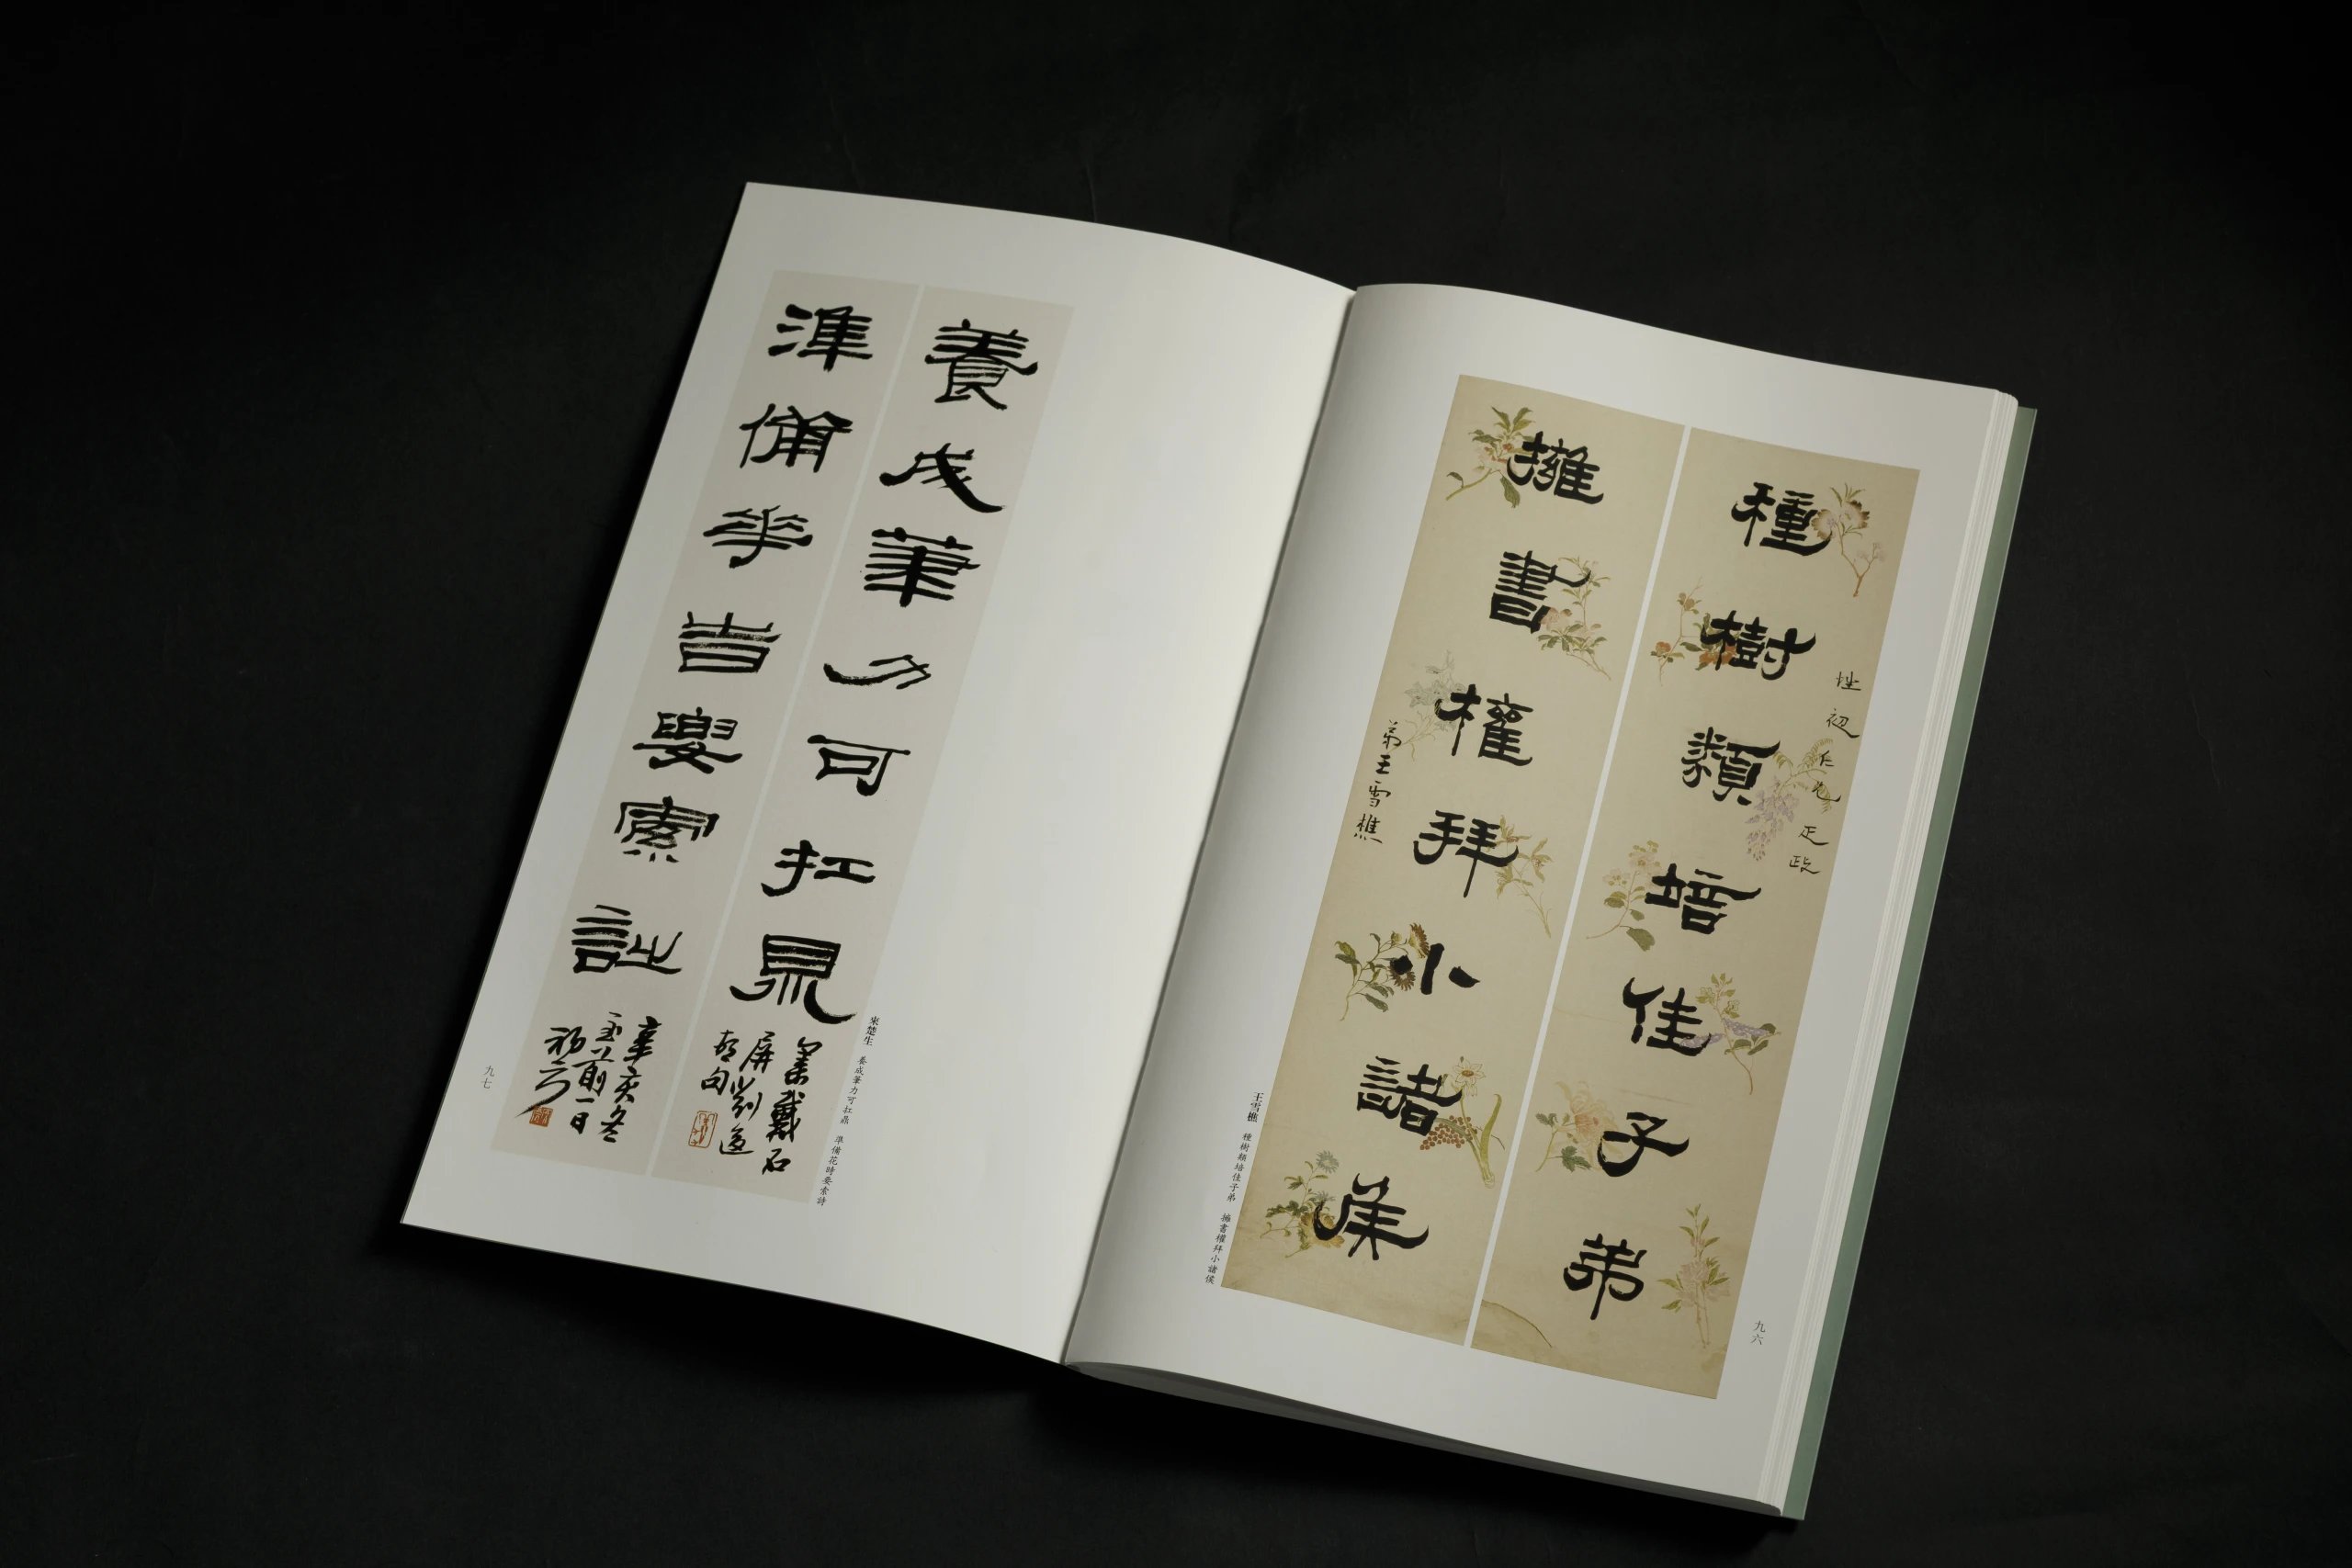 種樹類培佳子弟
初仁兄正政
擁書權拜小諸侯
弟王雪樵
王雪樵 種樹類培佳子弟 擁書權拜小諸侯
九六
養成筆力可扛鼎
集戴石
屏劉
句
準備華時要索詩
辛亥冬
至前一日
初升
來楚生 養成筆力可扛鼎 準備花時要索詩
九七